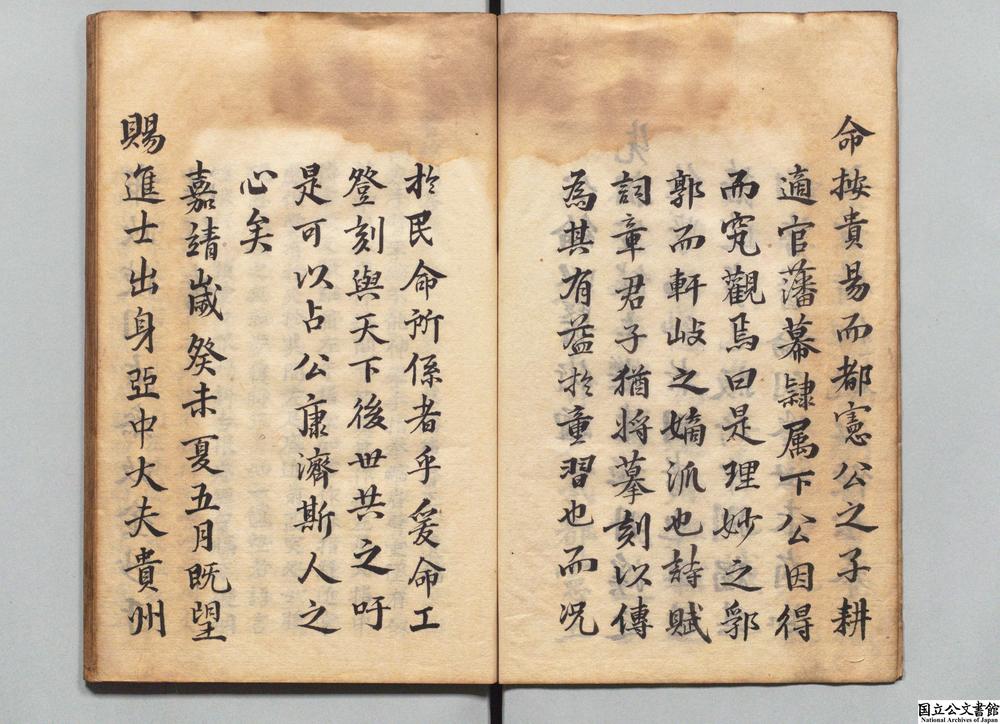 命按貴易而都憲公之子耕
適官藩幕隷属下公因得
而究觀焉曰是理妙之郛
郭而軒岐之嫡派也詩賦
詞章君子猶將摹刻以傳
爲其有益於童習也而况
於民命所係者乎爰命工
登刻與天下後世共之吁
是可以占公康濟斯人之
心矣
嘉靖歲癸未夏五月既望
賜進士出身亞中大夫貴州
国立公文書館
National Archives of Japan